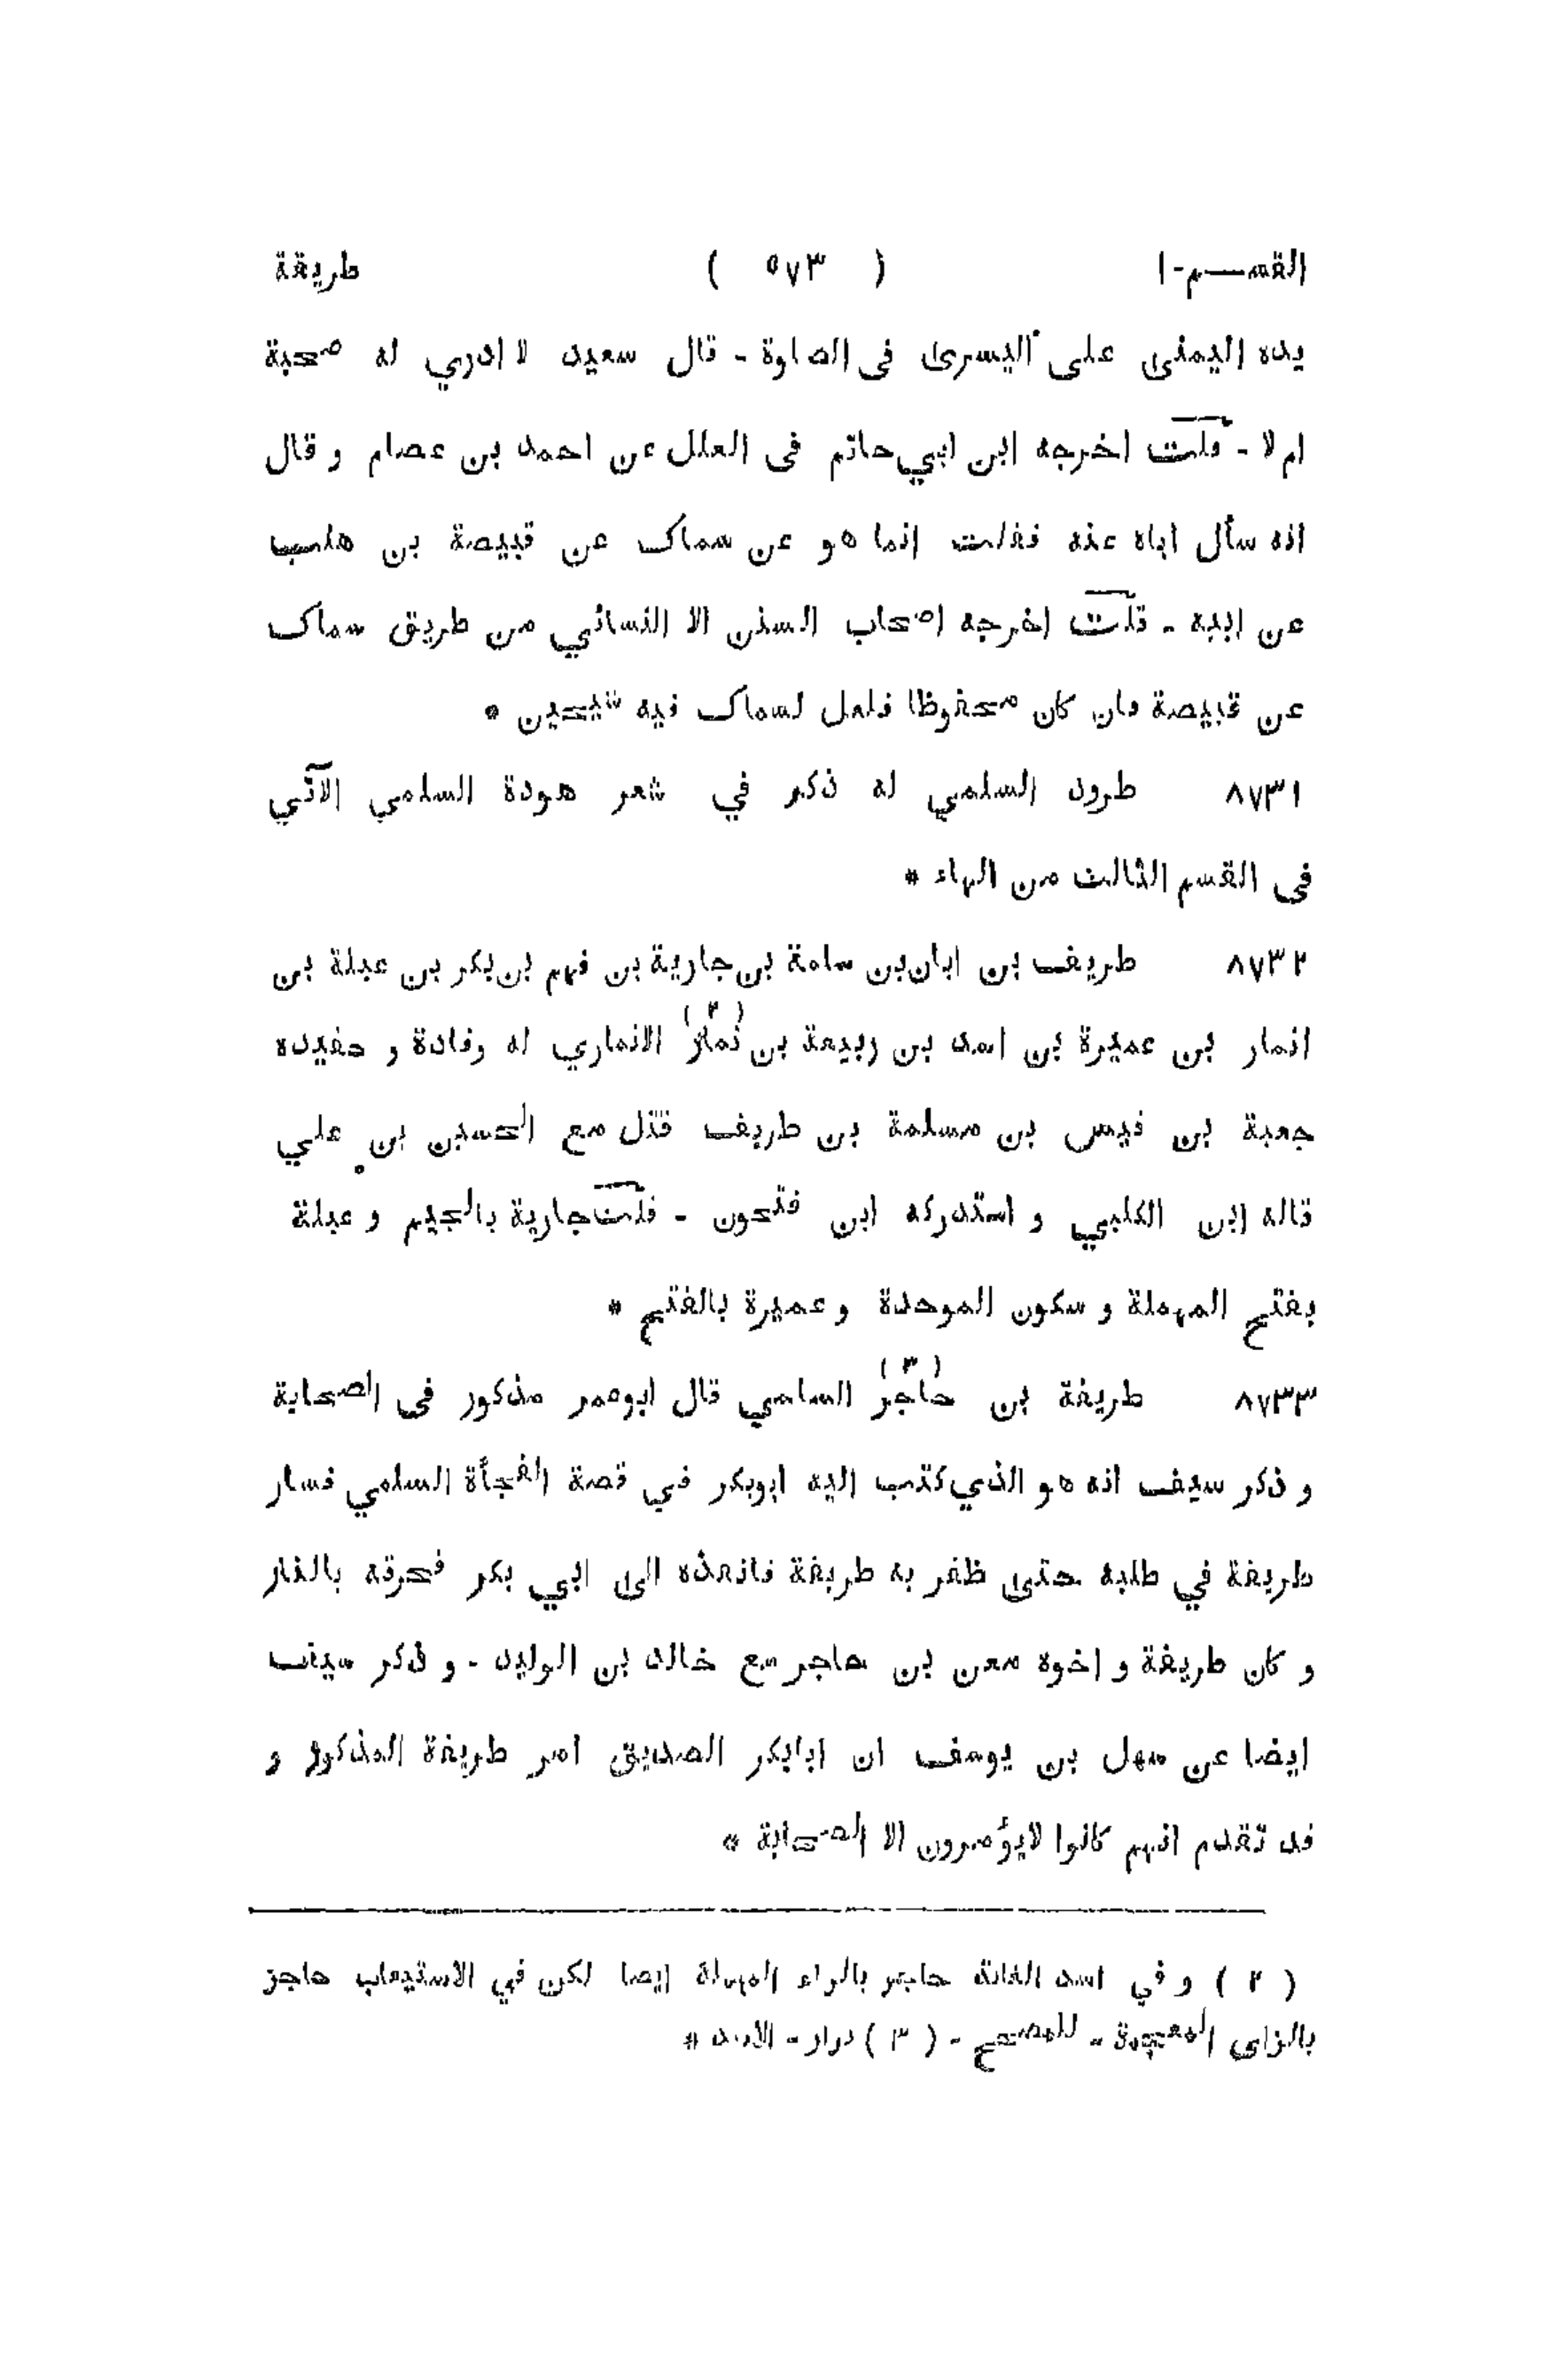 القسم-١ ( ٥٧٣ ) طريفة
يده اليمنى على اليسرى فى الصلوة - قال سعيد لا ادري له صحبة
ام لا - قلت اخرجه ابن ابي حاتم فى العلل عن احمد بن عصام و قال
انه سأل اباه عنه فقلت انما هو عن سماك عن قبيصة بن هلب
عن ابيه - قلت اخرجه اصحاب السنن الا النسائي من طريق سماك
عن قبيصة فان كان محفوظا فلعل لسماك فيه شيخين *
٨٧٣١ طرود السلمي له ذكر في شعر هودة السلمي الآتي
فى القسم الثالث من الهاء *
٨٧٣٢ طريف بن ابان بن سلمة بن جارية بن فهم بن بكر بن عبلة بن
انمار بن عميرة بن اسد بن ربيعة بن نمار (٢) الانماري له وفادة و حفيده
جعبة بن قيس بن مسلمة بن طريف قتل مع الحسين بن علي
قاله ابن الكلبي و استدركه ابن فتحون - قلت جارية بالجيم و عبلة
بفتح المهملة و سكون الموحدة و عميرة بالفتح *
٨٧٣٣ طريفة بن حاجر (٣) السلمي قال ابو عمر مذكور فى الصحابة
و ذكر سيف انه هو الذي كتب اليه ابوبكر في قصة الفجأة السلمي فسار
طريفة في طلبه حتى ظفر به طريفة فانفذه الى ابي بكر فحرقه بالنار
و كان طريفة و اخوه معن بن حاجر مع خالد بن الوليد - و ذكر سيف
ايضا عن سهل بن يوسف ان ابابكر الصديق امر طريفة المذكور و
قد تقدم انهم كانوا لايؤمرون الا الصحابة *
( ٢ ) و في اسد الغابة حاجر بالراء المهملة ايضا لكن في الاستيعاب حاجز
بالزاى المعجمة - للمصحح - ( ٣ )